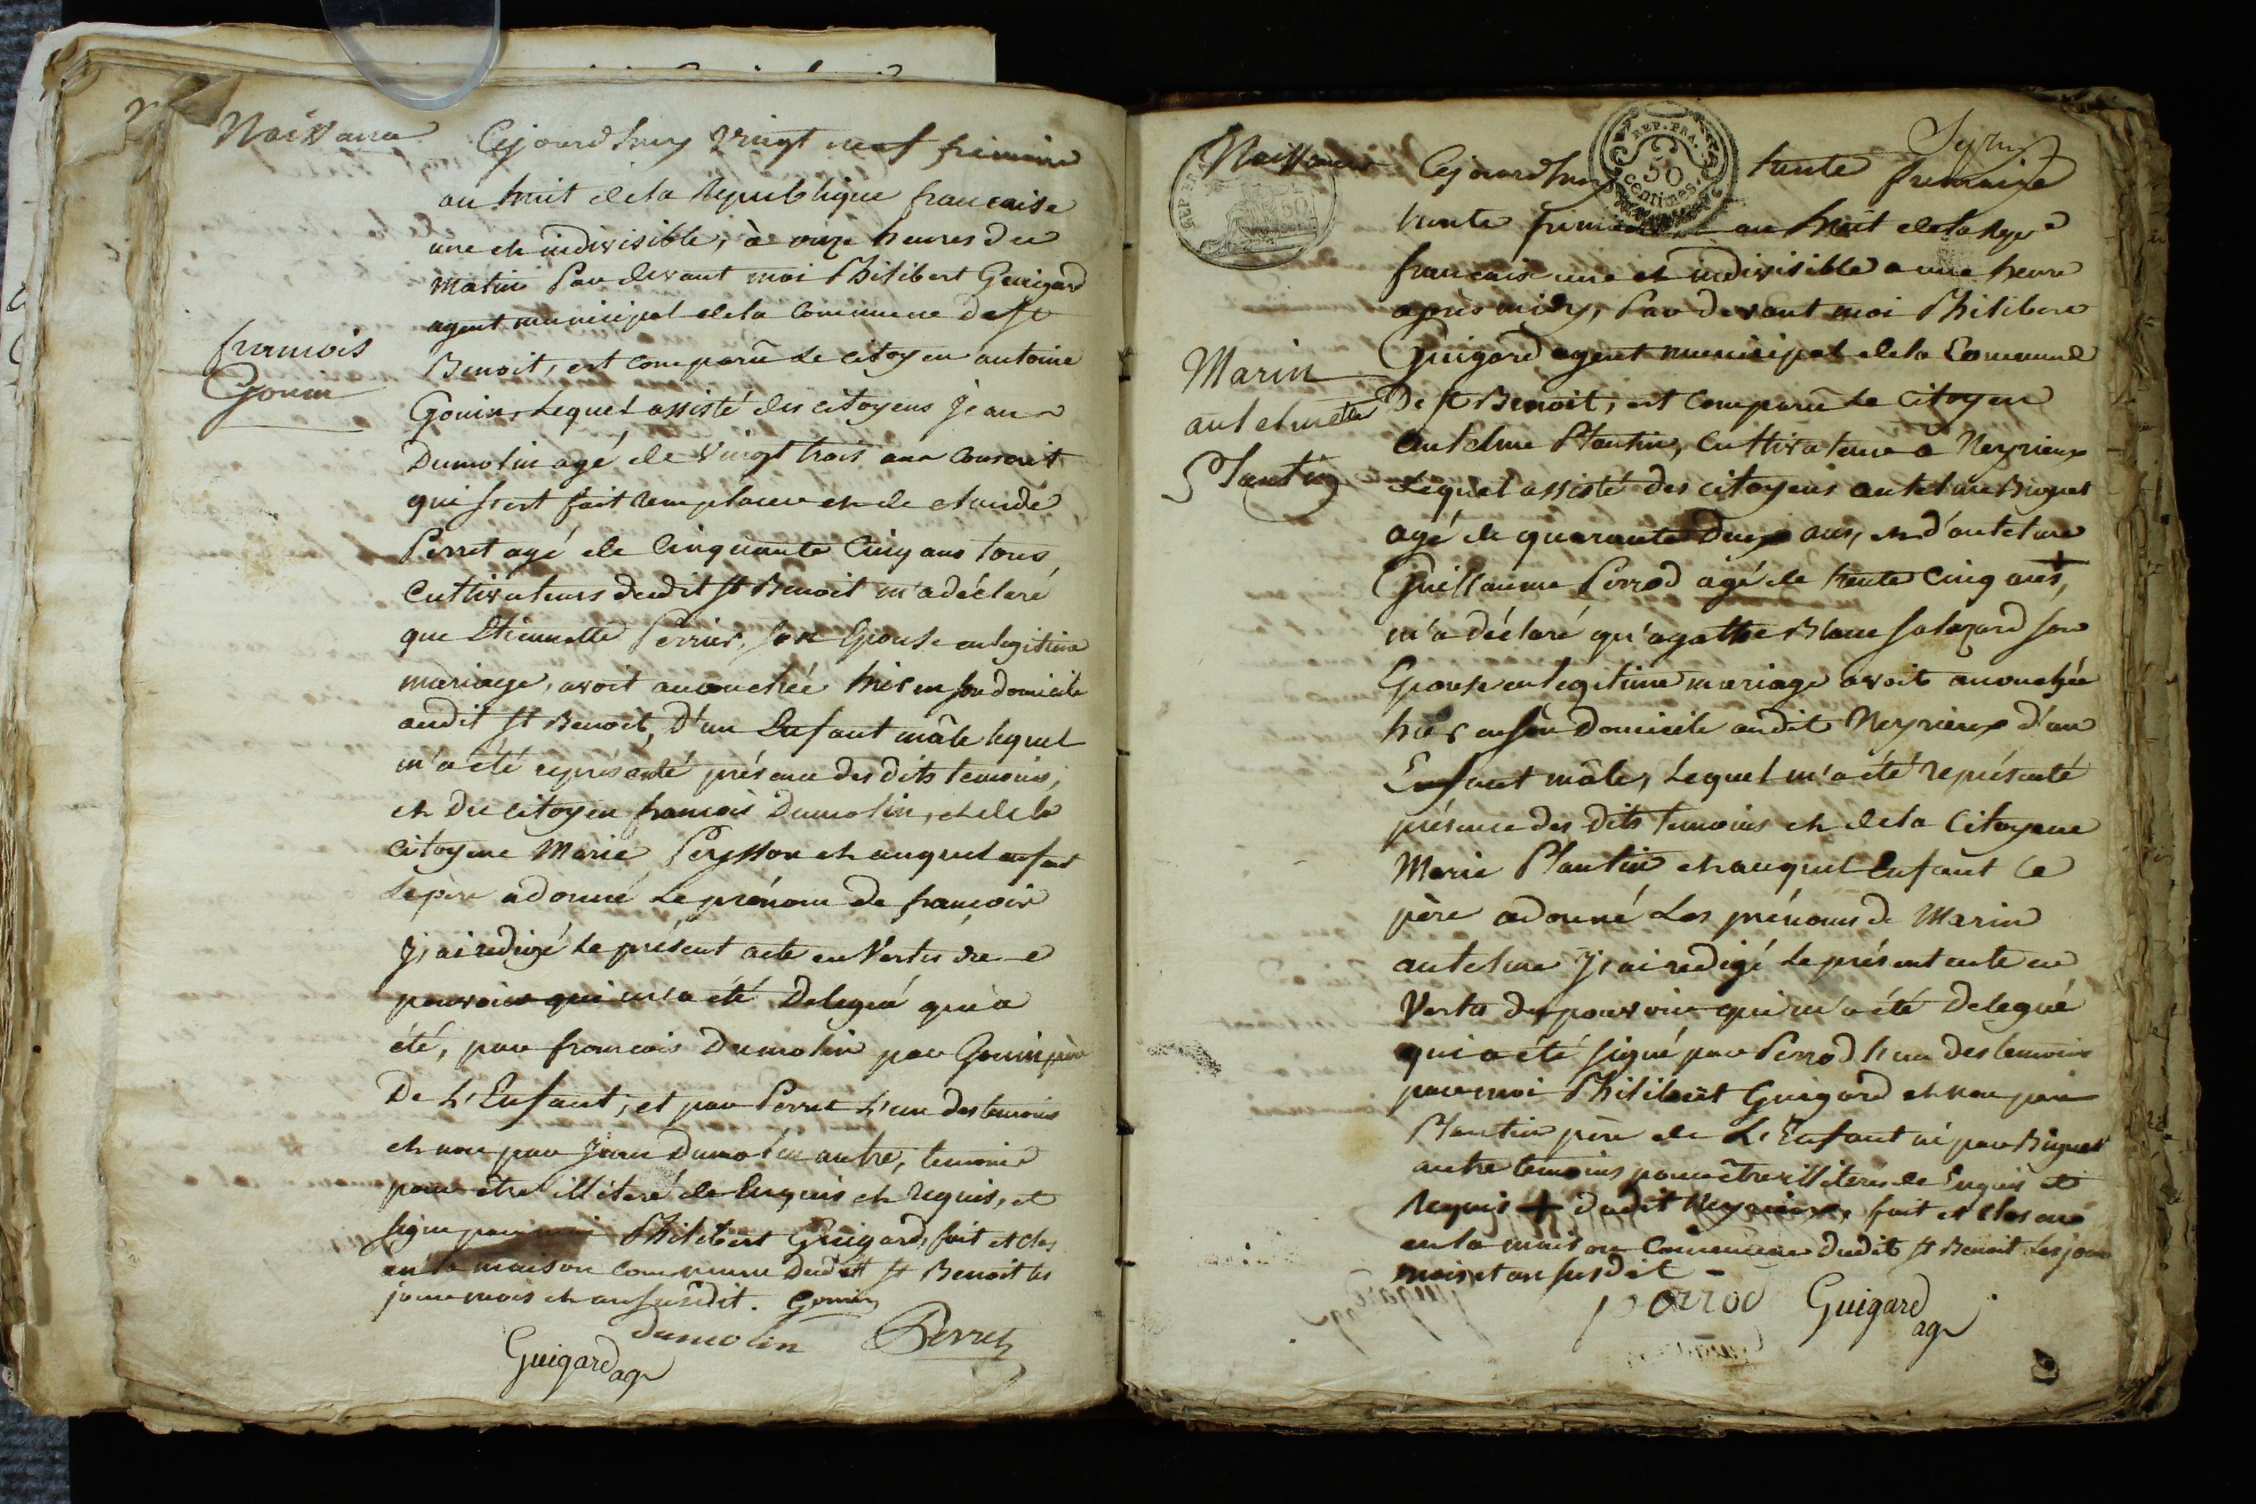 Naissance
françois
Gonin
Cejourdhuy vingt neuf frimaire
an huit de la republique francaise
une et indivisible, à onze heures du
matin Par devant moi Philibert Guigard
agent municipal de la Commune de st
Benoit, est comparu le citoyen antoine
Gonin, Lequel assisté des citoyens jean
Dumolin agé de vingt trois ans conscrit
qui s'est fait remplacer et de claude
Perret agé de Cinquante Cinq ans tous
Cultivateurs dudit st Benoit m'a déclaré
que Etiennette Perrier, son Epouse en legitime
mariage, avoit accouchée hier en son domicile
audit st Benoit, D'un Enfant mâle lequel
m'a été représenté présence des dits temoins,
et du citoyen francois Dumolin, et de la
citoyene Marie Peysson et auquel enfant
le père a donné le prénom de françois
J'ai redigé le présent acte en Vertu de
pouvoirs qui m'a été Delegué qui a
été, par francois Dumolin par Gonin père
De L'Enfant, et par Perret L'un des temoins
et non par Jean Dumolin autre, temoins
pour être illiteré de Enquis et requis, et
signe par moi Philibert Guigard, fait et clos
en la maison commune dudit st Benoit les
jour mois et an susdit. Gonin
dumolin Perret
Guigard ag
Naissance
REP. FRA.
50
centimes.
Marin
antelme
Plantin
Cejourdhuy trente frimaire
trente frimaire an huit de la rep
francaise une et indivisible a une heure
après midy, Par devant moi Philibert
Guigard agent municipal de la Commune
De st Benoit, est comparu le citoyen
antelme Plantin, Cultivateur a Neyrieux
Lequel assisté des citoyens antelme Buguet
agé de quarante Deux ans, et d'antelme
Guillaume Perrod agé de trente Cinq ans, +
m'a déclaré qu'agathe Blanc salazard son
Epouse en legitime mariage avoit accouchée
hier en son Domicile audit Neyrieux d'un
Enfant mâle, Lequel m'a été représenté
présence des Dits temoins et de la Citoyene
Marie Plantin et auquel Enfant le
père a donné Les prénoms de Marin
antelme J'ai redigé le présent acte en
Vertu des pouvoir qui m'a été Delegué
qui a été signé par Perrod l'un des temoins
par moi Philibert Guigard et non par
Plantin père de L'Enfant ni par Buguet
autre temoins pour être illiteres de Enquis et
Requis + dudit Neyrieux, fait et clos
en la maison Commune dudit st Benoit Les jour
mois et an susdit -
perrod Guigard
ag